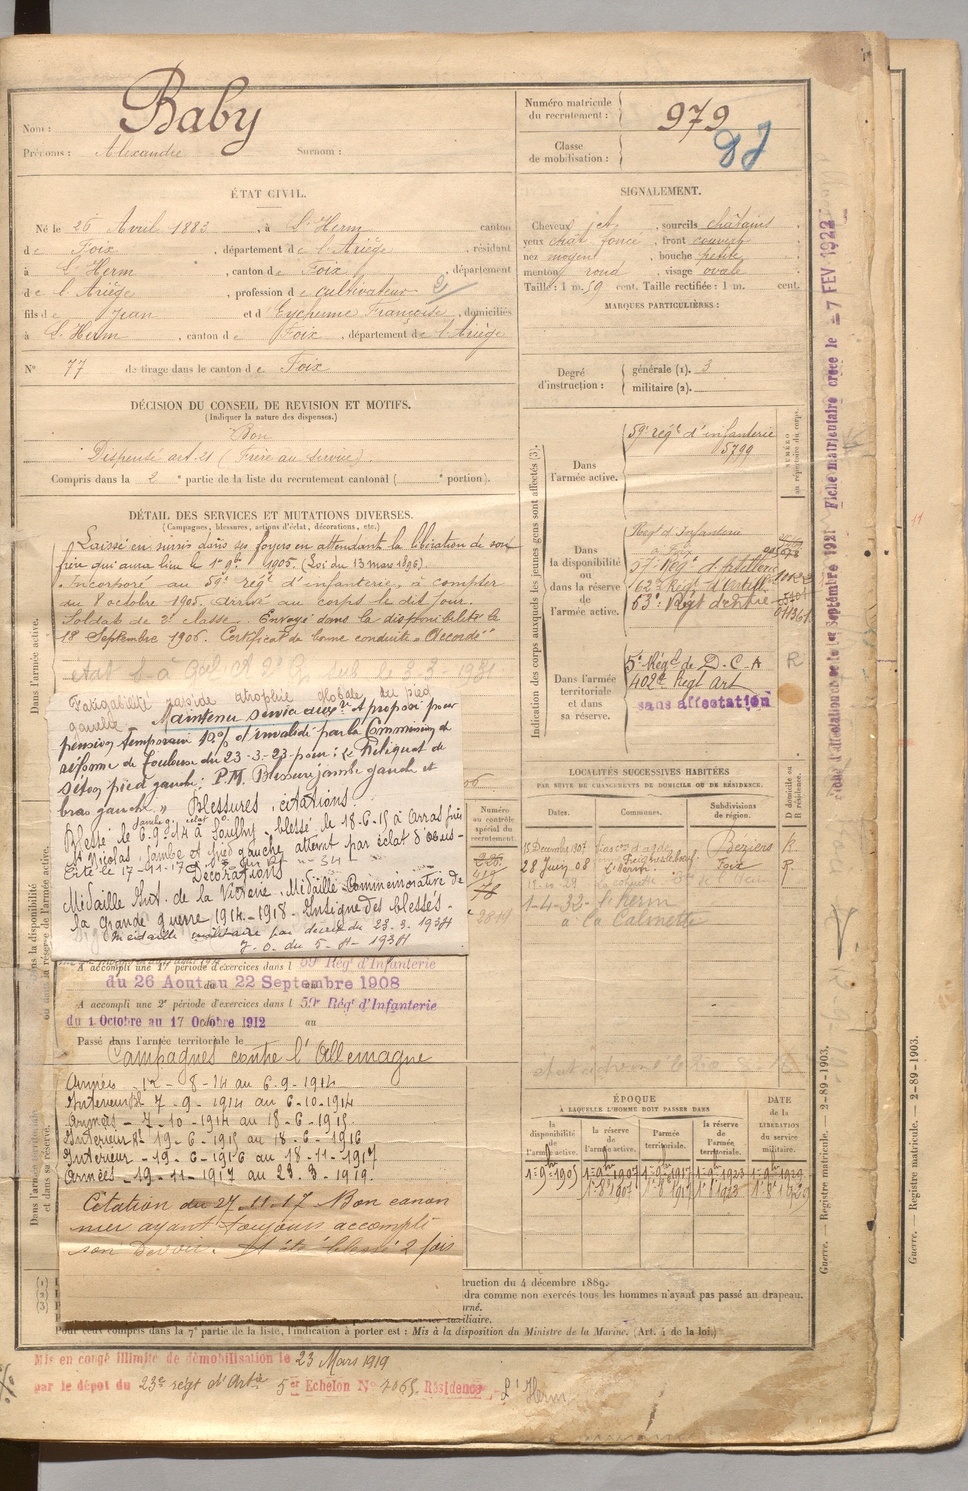 Nom : Baby
Prénoms : Alexandre Surnom :
Numéro matricule
du recrutement : 979
Classe
de mobilisation :
ÉTAT CIVIL.
Né le 26 Avril 1883, à L'Herm canton
de Foix, département de l'Ariège, résidant
à L'Herm, canton de Foix, département
de l'Ariège, profession de cultivateur
fils de Jean et d'Eychenne Françoise, domiciliés
à L'Herm, canton de Foix, département de l'Ariège
N° 77 de tirage dans le canton de Foix
SIGNALEMENT.
Cheveux jet, sourcils châtains
yeux chat. foncé, front couvert
nez moyen, bouche petite
menton rond, visage ovale
Taille : 1 m. 59 cent. Taille rectifiée : 1 m. cent.
MARQUES PARTICULIÈRES :
Degré
d'instruction :
générale (1). 3
militaire (2).
DÉCISION DU CONSEIL DE REVISION ET MOTIFS.
(Indiquer la nature des dispenses.)
Bon
Dispensé art. 21 (Frère au service)
Compris dans la 2e partie de la liste du recrutement cantonal ( e portion).
DÉTAIL DES SERVICES ET MUTATIONS DIVERSES.
(Campagnes, blessures, actions d'éclat, décorations, etc.)
Laissé en sursis dans ses foyers en attendant la libération de son
frère qui aura lieu le 1er 9bre 1905. (Loi du 13 mars 1896).
Incorporé au 59e régt d'infanterie, à compter
du 8 octobre 1905. Arrivé au corps le dit jour.
Soldat de 2e classe. Envoyé dans la disponibilité le
18 Septembre 1906. Certificat de bonne conduite "Accordé"
Fatigabilité rapide atrophie globale du pied
gauche - Maintenu service auxre et proposé pour
pension temporaire 10% d'invalidité par la Commission de
réforme de Toulouse du 23-3-23 pour : 1° Reliquat de
séton pied gauche. P.M. Blessure jambe gauche et
bras gauche "
Blessures, citations.
Blessé le 6-9-14 à Souilly - blessé le 18-6-15 à Arras près
St Nicolas, jambe et pied gauche, atteint par éclat d'obus -
Décorations
Médaille Int. de la Victoire, Médaille Commémorative de
la Grande guerre 1914-1918 - Insigne des blessés -
Médaille militaire par décret du 23-3-1934
J.O. du 5-4-1934
A accompli une 1re période d'exercices dans l 59e Régt d'Infanterie
du 26 Aout au 22 Septembre 1908
A accompli une 2e période d'exercices dans l 59e Régt d'Infanterie
du 1 Octobre au 17 Octobre 1912 au
Passé dans l'armée territoriale le
Campagnes contre l'Allemagne
Armées - 12-8-14 au 6-9-1914
Intérieur Bt 7-9-1914 au 6-10-1914
Armées - 7-10-1914 au 18-6-1915
Intérieur Bt 19-6-1915 au 18-6-1916
Intérieur - 19-6-1916 au 18-11-1917
Armées - 19-11-1917 au 23-3-1919.
Citation du 27.11.17 Bon canon
nier ayant toujours accompli
son devoir. A été blessé 2 fois
Indication des corps auxquels les jeunes gens sont affectés (3).
Dans
l'armée active.
59e régt d'infanterie
5799
NUMÉRO
au répertoire du corps.
Dans
la disponibilité
ou
dans la réserve
de
l'armée active.
Régt d'Infanterie
à Foix
57e Régt d'Artillerie
62e Régt d'Artill
53e Régt d'Artie
Dans l'armée
territoriale
et dans
sa réserve.
5e Régt de D.C.A
402e Régt Art
sans affectation
R
LOCALITÉS SUCCESSIVES HABITÉES
PAR SUITE DE CHANGEMENTS DE DOMICILE OU DE RÉSIDENCE.
Dates. Communes. Subdivisions
de région.
D domicile ou
R résidence.
15 Décembre 907 Béziers R.
28 Juin 08 L'Herm Foix R.
1-4-32- L'Herm
à la Calmette
Numéro
au contrôle
spécial du
recrutement.
ÉPOQUE
À LAQUELLE L'HOMME DOIT PASSER DANS
la
disponibilité
de
l'armée active.
la réserve
de
l'armée active.
l'armée
territoriale.
la réserve
de
l'armée
territoriale.
DATE
de la
LIBÉRATION
du service
militaire.
Dans l'armée active.
truction du 4 décembre 1889.
dra comme non exercés tous les hommes n'ayant pas passé au drapeau.
Pour ceux compris dans la 7e partie de la liste, l'indication à porter est : Mis à la disposition du Ministre de la Marine. (Art. 4 de la loi.)
Mis en congé illimité de démobilisation le 23 Mars 1919
par le dépôt du 23e régt d'Artie 5er Echelon N° 4065 Résidence L'Herm
Guerre. — Registre matricule. — 2-89-1903.
Guerre. — Registre matricule. — 2-89-1903.